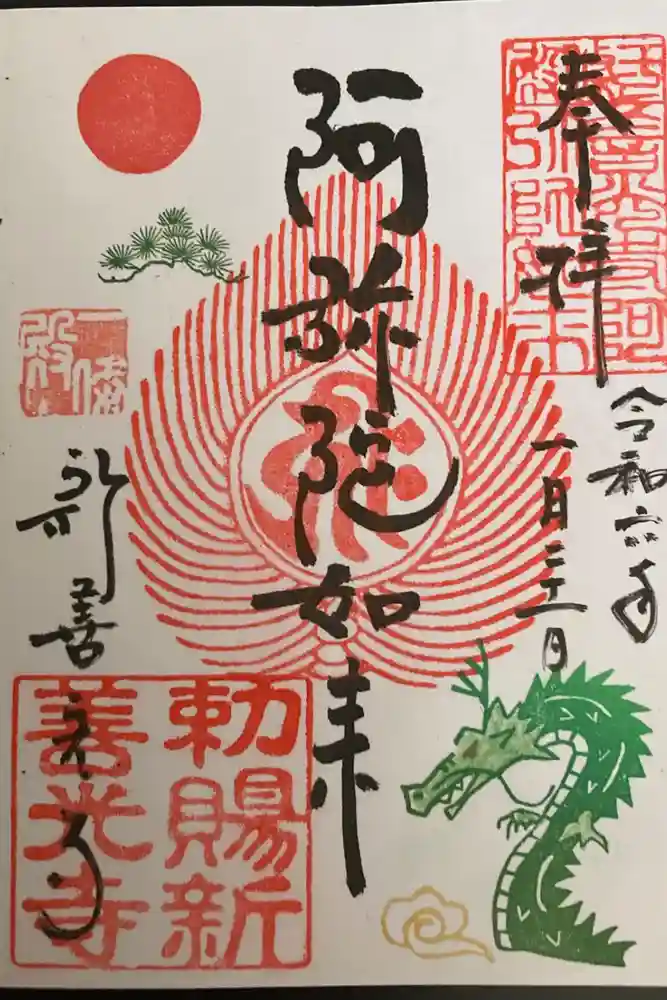 奉拝
令和六年
一月二十一日
阿弥陀如来
新善光寺
勅賜新
善光寺